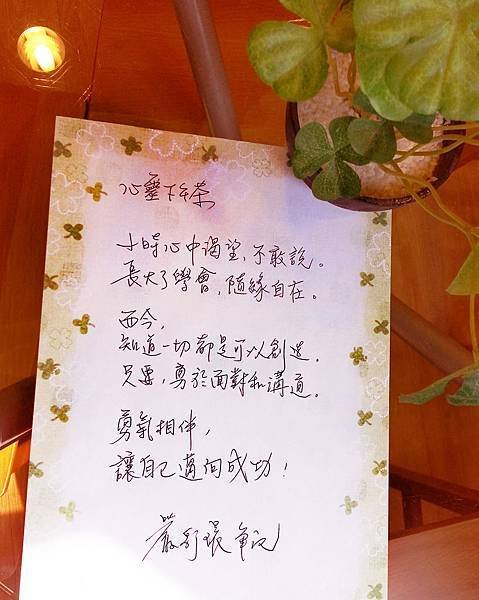 心靈下午茶
小時心中渴望,不敢說。
長大了學會,隨緣自在。
而今,
知道一切都是可以創造,
只要,勇於面對和溝通。
勇氣相伴,
讓自己邁向成功!
嚴